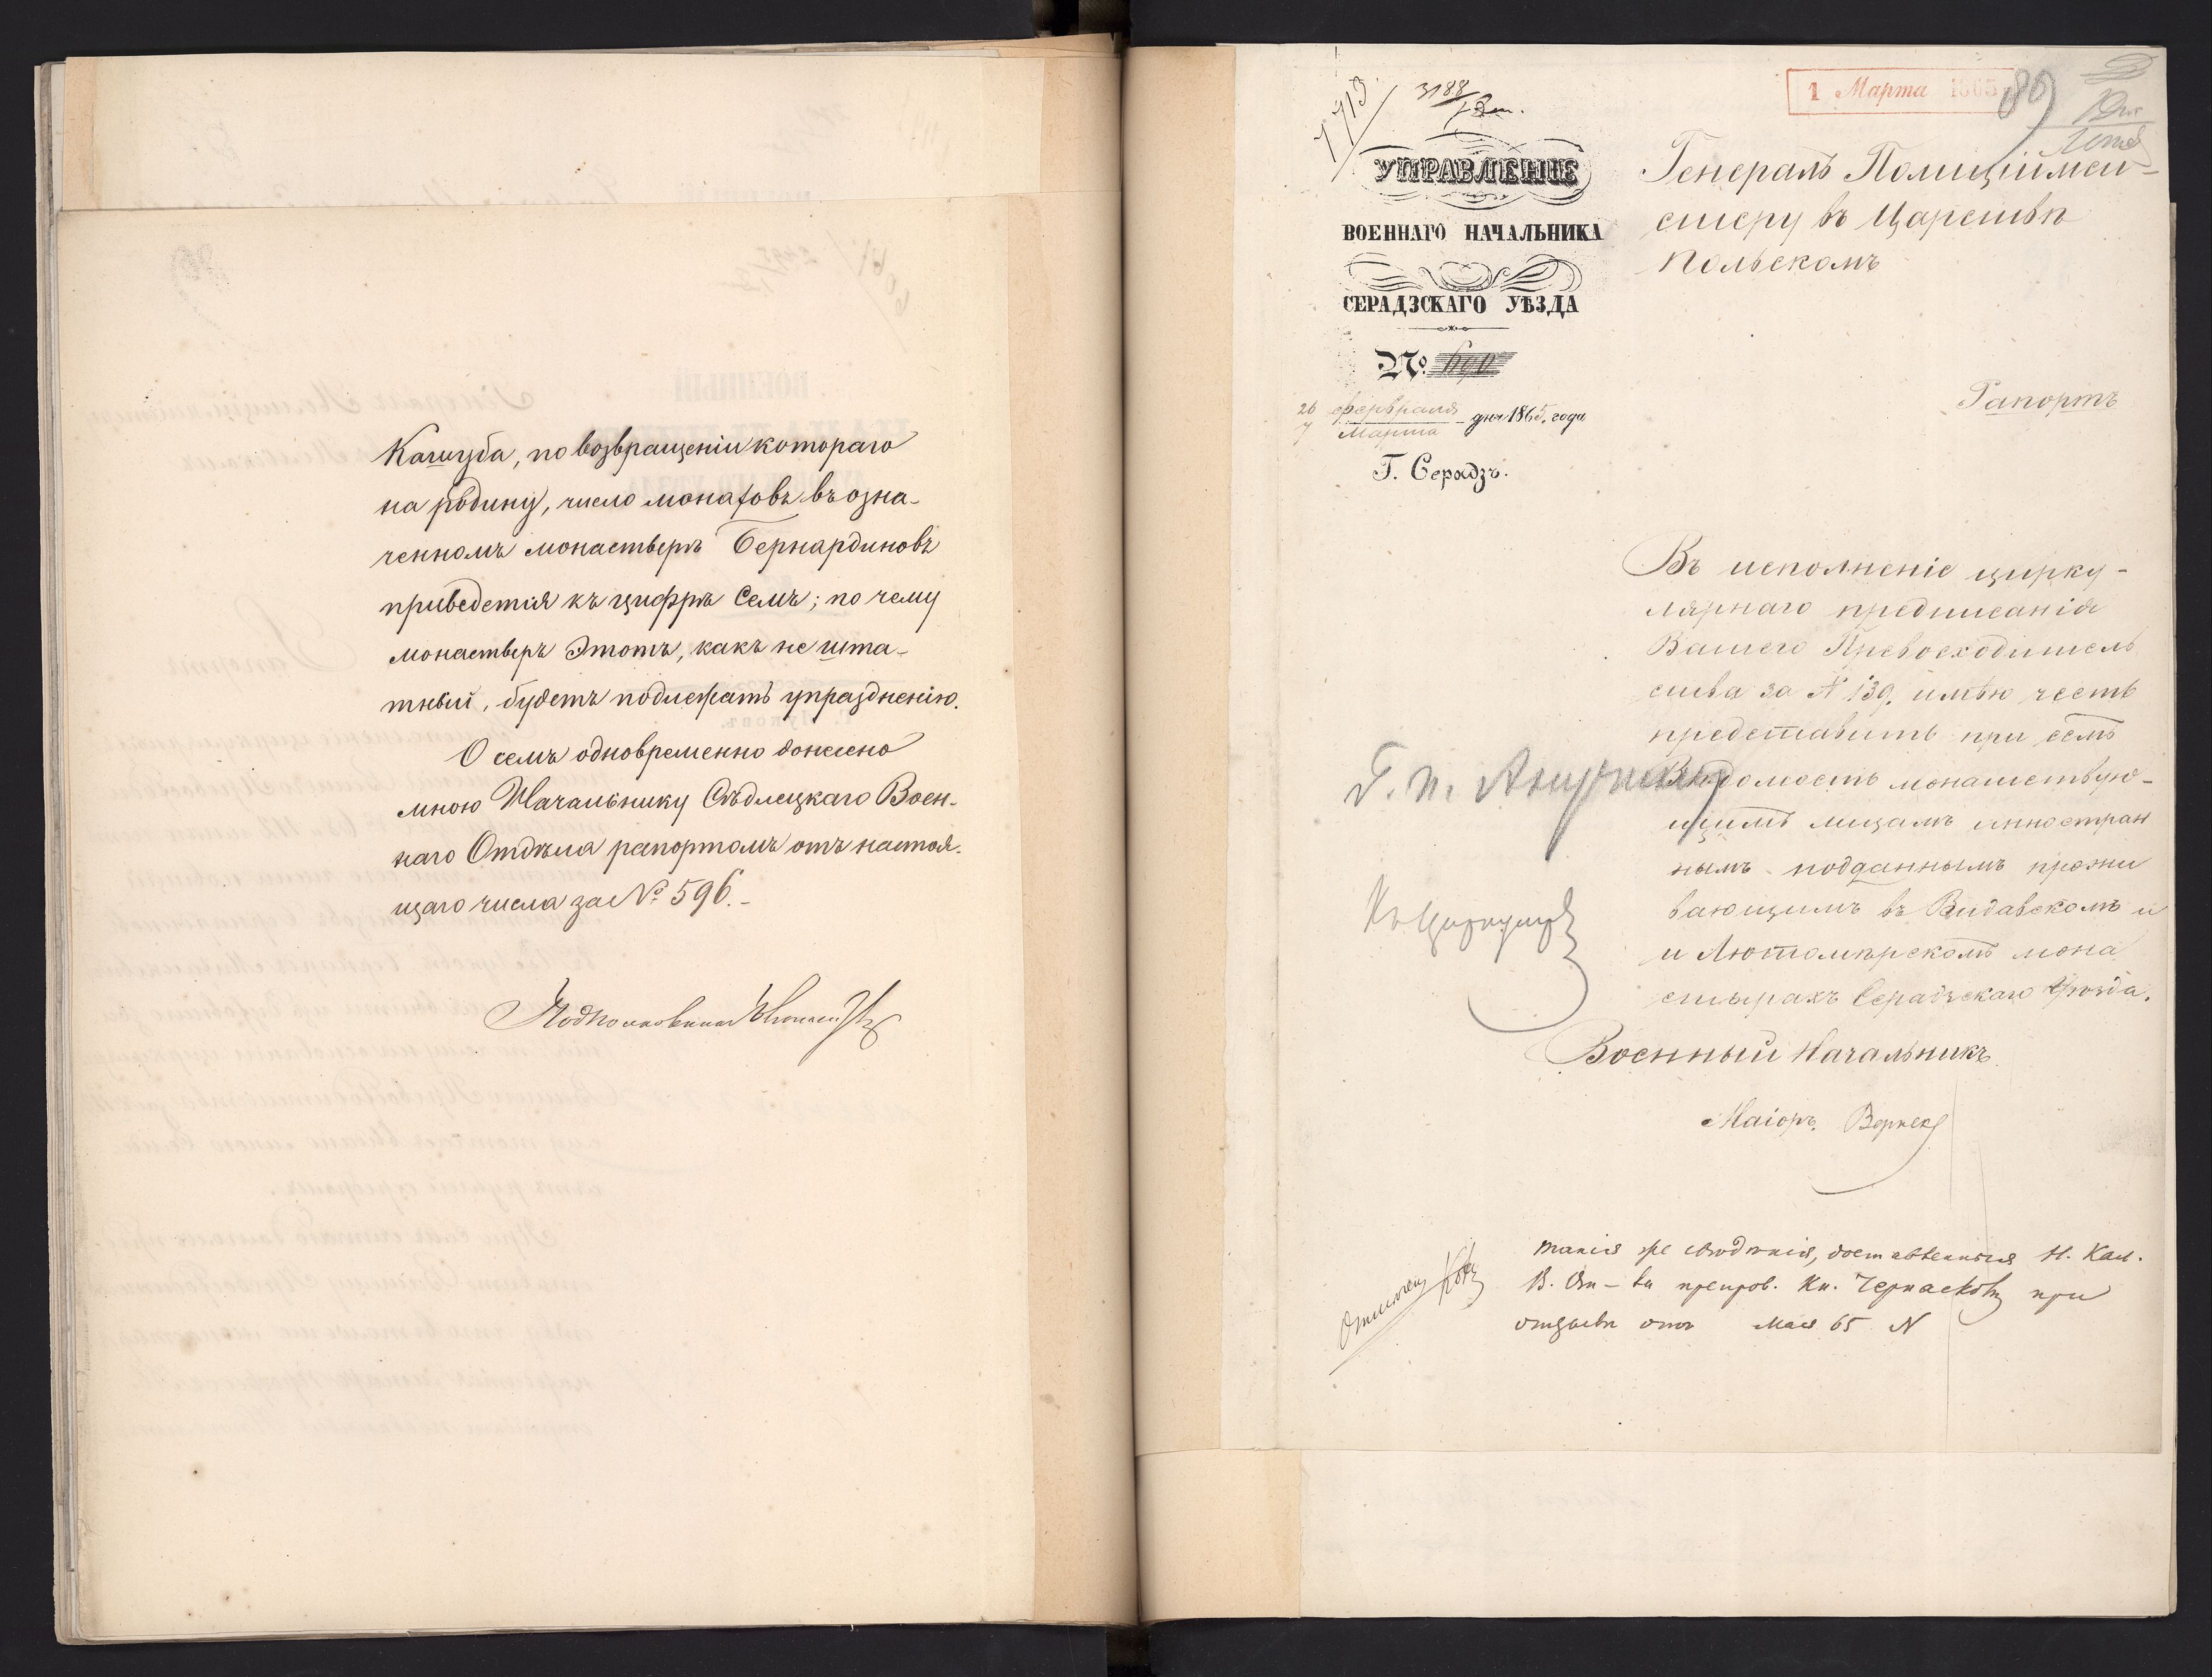 Кашуба, по возвращеніи котораго
на родину, число монаховъ въ озна-
ченномъ монастырѣ Бернардиновъ
приведется къ цифрѣ семь; по чему
монастырь этотъ, какъ не шта-
тный, будетъ подлежать упраздненію.
О семъ одновременно донесено
мною Начальнику Сѣдлецкаго Воен-
наго Отдѣла рапортомъ отъ настоя-
щаго числа за № 596.-
Подполковникъ
1713
3188
1 Марта 1865
89
УПРАВЛЕНІЕ
ВОЕННАГО НАЧАЛЬНИКА
СЕРАДЗСКАГО УѢЗДА
№ 690
26 февраля
Марта дня 1865 года
Г. Серадзь.
Генералъ Полиціймей-
стеру въ Царствѣ
Польскомъ
Рапортъ
Въ исполненіе цирку-
лярнаго предписанія
Вашего Превосходитель
ства за № 139. имѣю честь
представить при семъ
Вѣдомость монашествую-
щимъ лицамъ инностран
нымъ подданнымъ прожи
вающимъ въ Видавскомъ и
и Лютомѣрскомъ мона
стырахъ Серадзскаго Уѣзда.
Военный Начальникъ
Маіоръ Вернеке
Г. П.
такія же свѣдѣнія, доставленныя Н. Кал.
В. От-ла препров. Кн. Черкаскому при
отзывѣ отъ Мая 65 N